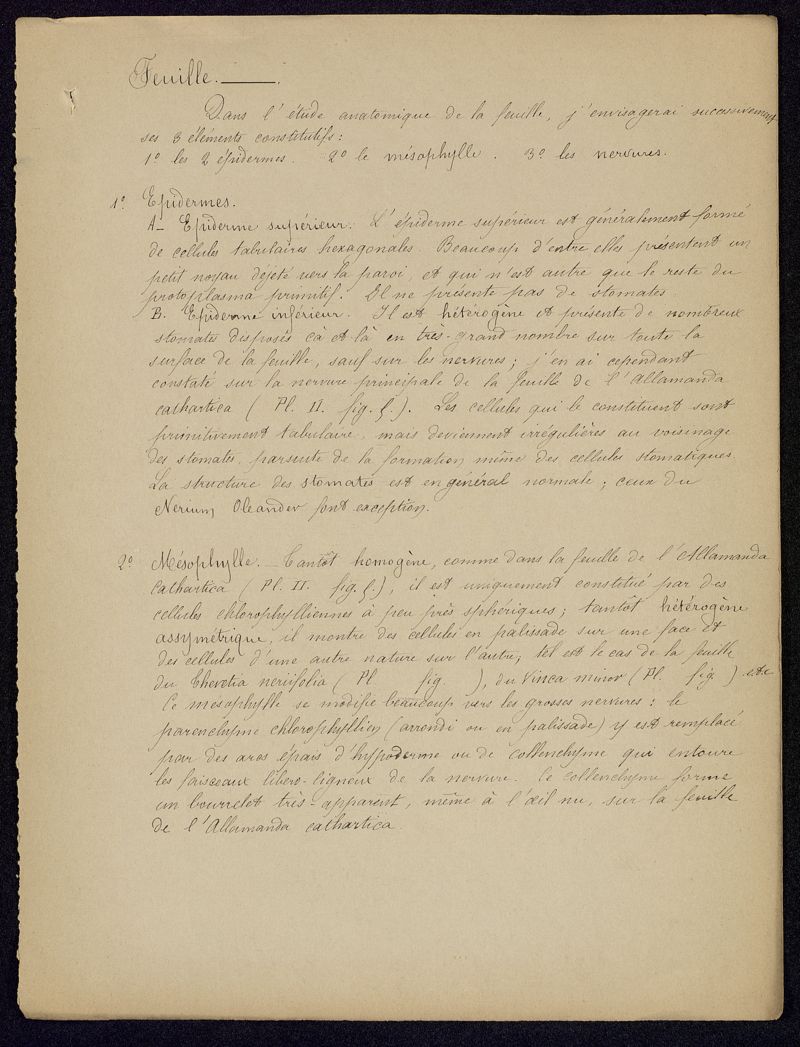 Feuille. ———.
Dans l'étude anatomique de la feuille, j'envisagerai successivement
ses 3 éléments constitutifs:
1º les 2 épidermes. 2º le mésophylle. 3º les nervures.
1º. Epidermes.
A_ Epiderme supérieur. L'épiderme supérieur est généralement formé
de cellules tabulaires hexagonales. Beaucoup d'entre elles présentent un
petit noyau déjeté vers la paroi, et qui n'est autre que le reste du
protoplasma primitif. Il ne présente pas de stomates.
B. Epiderme inférieur. Il est hétérogène et présente de nombreux
stomates disposés cà et là en très-grand nombre sur toute la
surface de la feuille, sauf sur les nervures; j'en ai cependant
constaté sur la nervure principale de la feuille de l'Allamanda
cathartica (Pl. II. fig. f.). Les cellules qui le constituent sont
primitivement tabulaire, mais deviennent irrégulières au voisinage
des stomates, par suite de la formation même des cellules stomatiques.
La structure des stomates est en général normale; ceux du
Nerium Oleander font exception.
2º Mésophylle. _ Tantôt homogène, comme dans la feuille de l'Allamanda
cathartica (Pl. II fig. f.), il est uniquement constitué par des
cellules chlorophylliennes à peu près sphériques; tantôt hétérogène
assymétrique, il montre des cellules en palissade sur une face et
des cellules d'une autre nature sur l'autre, tel est le cas de la feuille
du Thevetia neriifolia (Pl fig. ), du Vinca minor (Pl. fig. ) etc
Ce mésophylle se modifie beaucoup vers les grosses nervures: le
parenchyme chlorophyllien (arrondi ou en palissade) y est remplacé
par des arcs épais d'hypoderme ou de collenchyme qui entoure
les faisceaux libero-ligneux de la nervure. Ce collenchyme forme
un bourrelet très-apparent, même à l'œil nu, sur la feuille
de l'Allamanda cathartica.